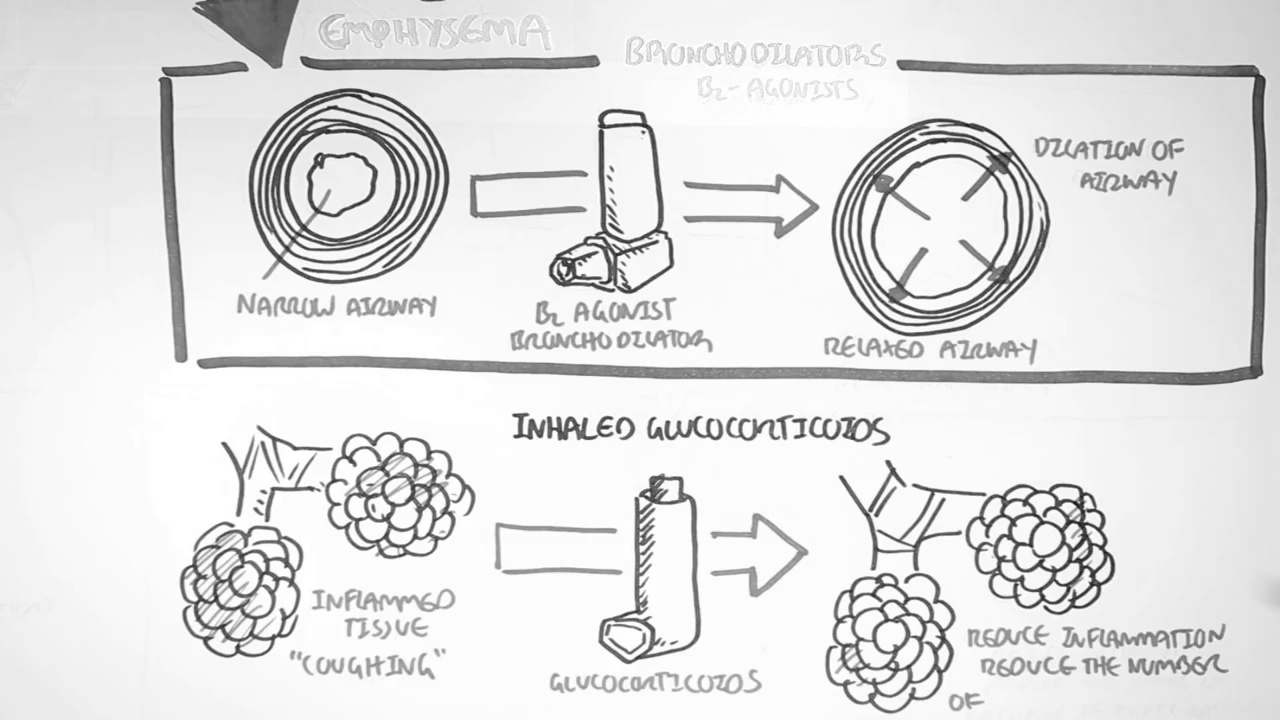 EMPHYSEMA
BRONCHODILATORS
B2-AGONISTS
NARROW AIRWAY
B2 AGONIST
BRONCHODILATOR
DILATION OF
AIRWAY
RELAXED AIRWAY
INHALED GLUCOCORTICOIDS
INFLAMMED
TISSUE
"COUGHING"
GLUCOCORTICOIDS
REDUCE INFLAMMATION
REDUCE THE NUMBER
OF